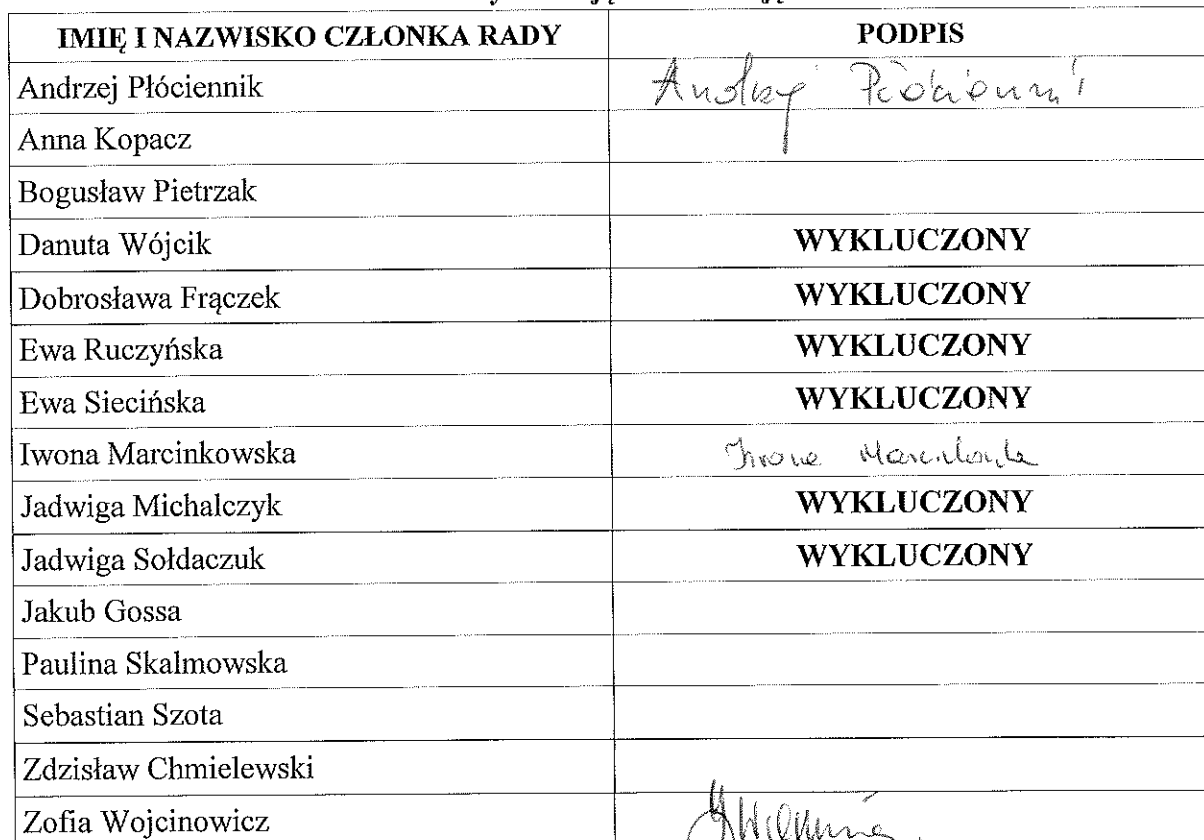 IMIĘ I NAZWISKO CZŁONKA RADY PODPIS
Andrzej Płóciennik Andrzej Płóciennik
Anna Kopacz
Bogusław Pietrzak
Danuta Wójcik WYKLUCZONY
Dobrosława Frączek WYKLUCZONY
Ewa Ruczyńska WYKLUCZONY
Ewa Siecińska WYKLUCZONY
Iwona Marcinkowska Iwona Marcinkowska
Jadwiga Michalczyk WYKLUCZONY
Jadwiga Sołdaczuk WYKLUCZONY
Jakub Gossa
Paulina Skalmowska
Sebastian Szota
Zdzisław Chmielewski
Zofia Wojcinowicz